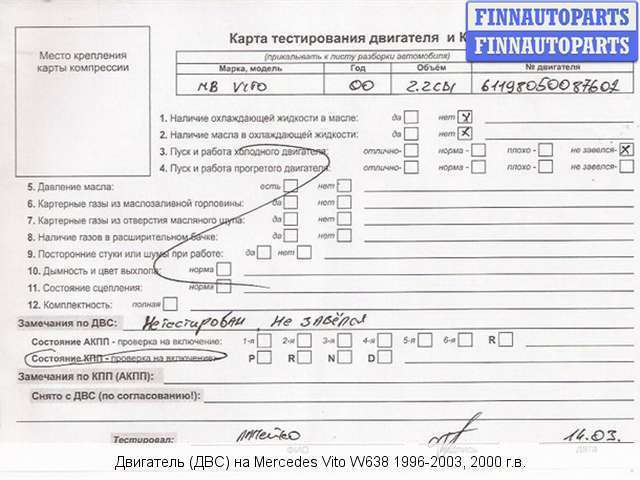 FINNAUTOPARTS
FINNAUTOPARTS
Карта тестирования двигателя и К
Место крепления
карты компрессии
(прикалывать к листу разборки автомобиля)
Марка, модель Год Объём № двигателя
МВ VITO 00 2.2CDI 61198050087602
1. Наличие охлаждающей жидкости в масле: да нет x
2. Наличие масла в охлаждающей жидкости: да нет x
3. Пуск и работа холодного двигателя: отлично- норма - плохо - не завелся- x
4. Пуск и работа прогретого двигателя: отлично- норма - плохо - не завелся-
5. Давление масла: есть нет
6. Картерные газы из маслозаливной горловины: да нет
7. Картерные газы из отверстия масляного щупа: да нет
8. Наличие газов в расширительном бачке: да нет
9. Посторонние стуки или шумы при работе: да нет
10. Дымность и цвет выхлопа: норма
11. Состояние сцепления: норма
12. Комплектность: полная
Замечания по ДВС: Не тестирован, не завёлся
Состояние АКПП - проверка на включение: 1-я 2-я 3-я 4-я 5-я 6-я R
Состояние КПП - проверка на включение: P R N D
Замечания по КПП (АКПП):
Снято с ДВС (по согласованию!):
Тестировал: 14.03.
ФИО подпись дата
Двигатель (ДВС) на Mercedes Vito W638 1996-2003, 2000 г.в.